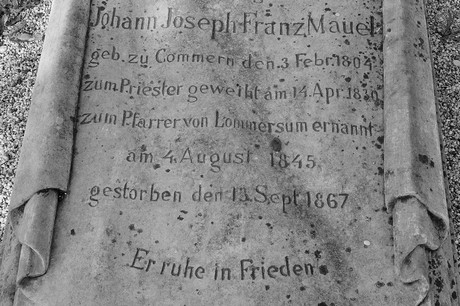 Johann Joseph Franz Mauel
geb. zu Commern den 3 Febr. 1804
zum Priester geweiht am 14. Apr. 1830
zum Pfarrer von Lommersum ernannt
am 4. August 1845.
gestorben den 13. Sept 1867
Er ruhe in Frieden.